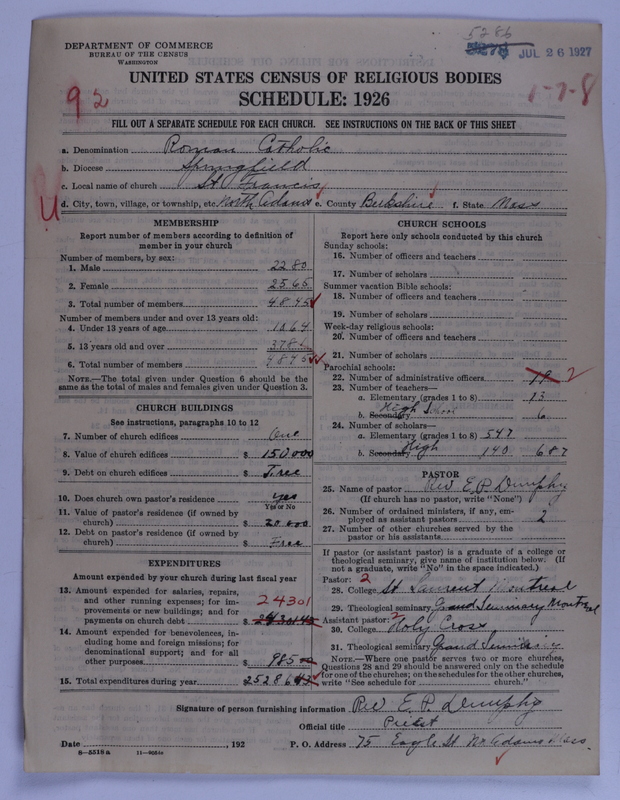 5286
DEPARTMENT OF COMMERCE
BUREAU OF THE CENSUS
WASHINGTON
JUL 26 1927
UNITED STATES CENSUS OF RELIGIOUS BODIES
SCHEDULE: 1926
92
1-7-8
FILL OUT A SEPARATE SCHEDULE FOR EACH CHURCH. SEE INSTRUCTIONS ON THE BACK OF THIS SHEET
a. Denomination Roman Catholic
b. Diocese Springfield
c. Local name of church St Francis
d. City, town, village, or township, etc. North Adams e. County Berkshire f. State Mass
MEMBERSHIP
Report number of members according to definition of member in your church
Number of members, by sex:
1. Male 2280
2. Female 2565
3. Total number of members 4845
Number of members under and over 13 years old:
4. Under 13 years of age 1064
5. 13 years old and over 3781
6. Total number of members 4845
NOTE.—The total given under Question 6 should be the
same as the total of males and females given under Question 3.
CHURCH BUILDINGS
See instructions, paragraphs 10 to 12
7. Number of church edifices One
8. Value of church edifices $ 150,000
9. Debt on church edifices $ Free
10. Does church own pastor's residence yes
Yes or No
11. Value of pastor's residence (if owned by
church) $ 20 000
12. Debt on pastor's residence (if owned by
church) $ Free
EXPENDITURES
Amount expended by your church during last fiscal year
13. For salaries, repairs,
and other running expenses; for im-
provements or new buildings; and for
payments on church debt $ 24301
14. Amount expended for benevolences, in-
cluding home and foreign missions; for
denominational support; and for all
other purposes $ 985
15. Total expenditures during year 25286
CHURCH SCHOOLS
Report here only schools conducted by this church
Sunday schools:
16. Number of officers and teachers
17. Number of scholars
Summer vacation Bible schools:
18. Number of officers and teachers
19. Number of scholars
Week-day religious schools:
20. Number of officers and teachers
21. Number of scholars
Parochial schools:
22. Number of administrative officers 19 2
23. Number of teachers—
a. Elementary (grades 1 to 8) 13
b. Secondary High School 6
24. Number of scholars—
a. Elementary (grades 1 to 8) 547
b. Secondary High 140 687
PASTOR
25. Name of pastor Rev E. P. Dumphy
(If church has no pastor, write "None")
26. Number of ordained ministers, if any, em-
ployed as assistant pastors 2
27. Number of other churches served by the
pastor or his assistants
If pastor (or assistant pastor) is a graduate of a college or
theological seminary, give name of institution below. (If
not a graduate, write "No" in the space indicated.)
Pastor: 2
28. College St Laurent Montreal
29. Theological seminary Grand Seminary Montreal
Assistant pastor: 2
30. College Holy Cross
31. Theological seminary Grand Seminary
NOTE.—Where one pastor serves two or more churches,
Questions 28 and 29 should be answered only on the schedule
for one of the churches; on the schedules for the other churches,
write "See schedule for church."
Signature of person furnishing information Rev E. P. Dumphy
Official title Priest
Date , 192 P. O. Address 75 Eagle St No Adams Mass.
8—5518a 11—9054a